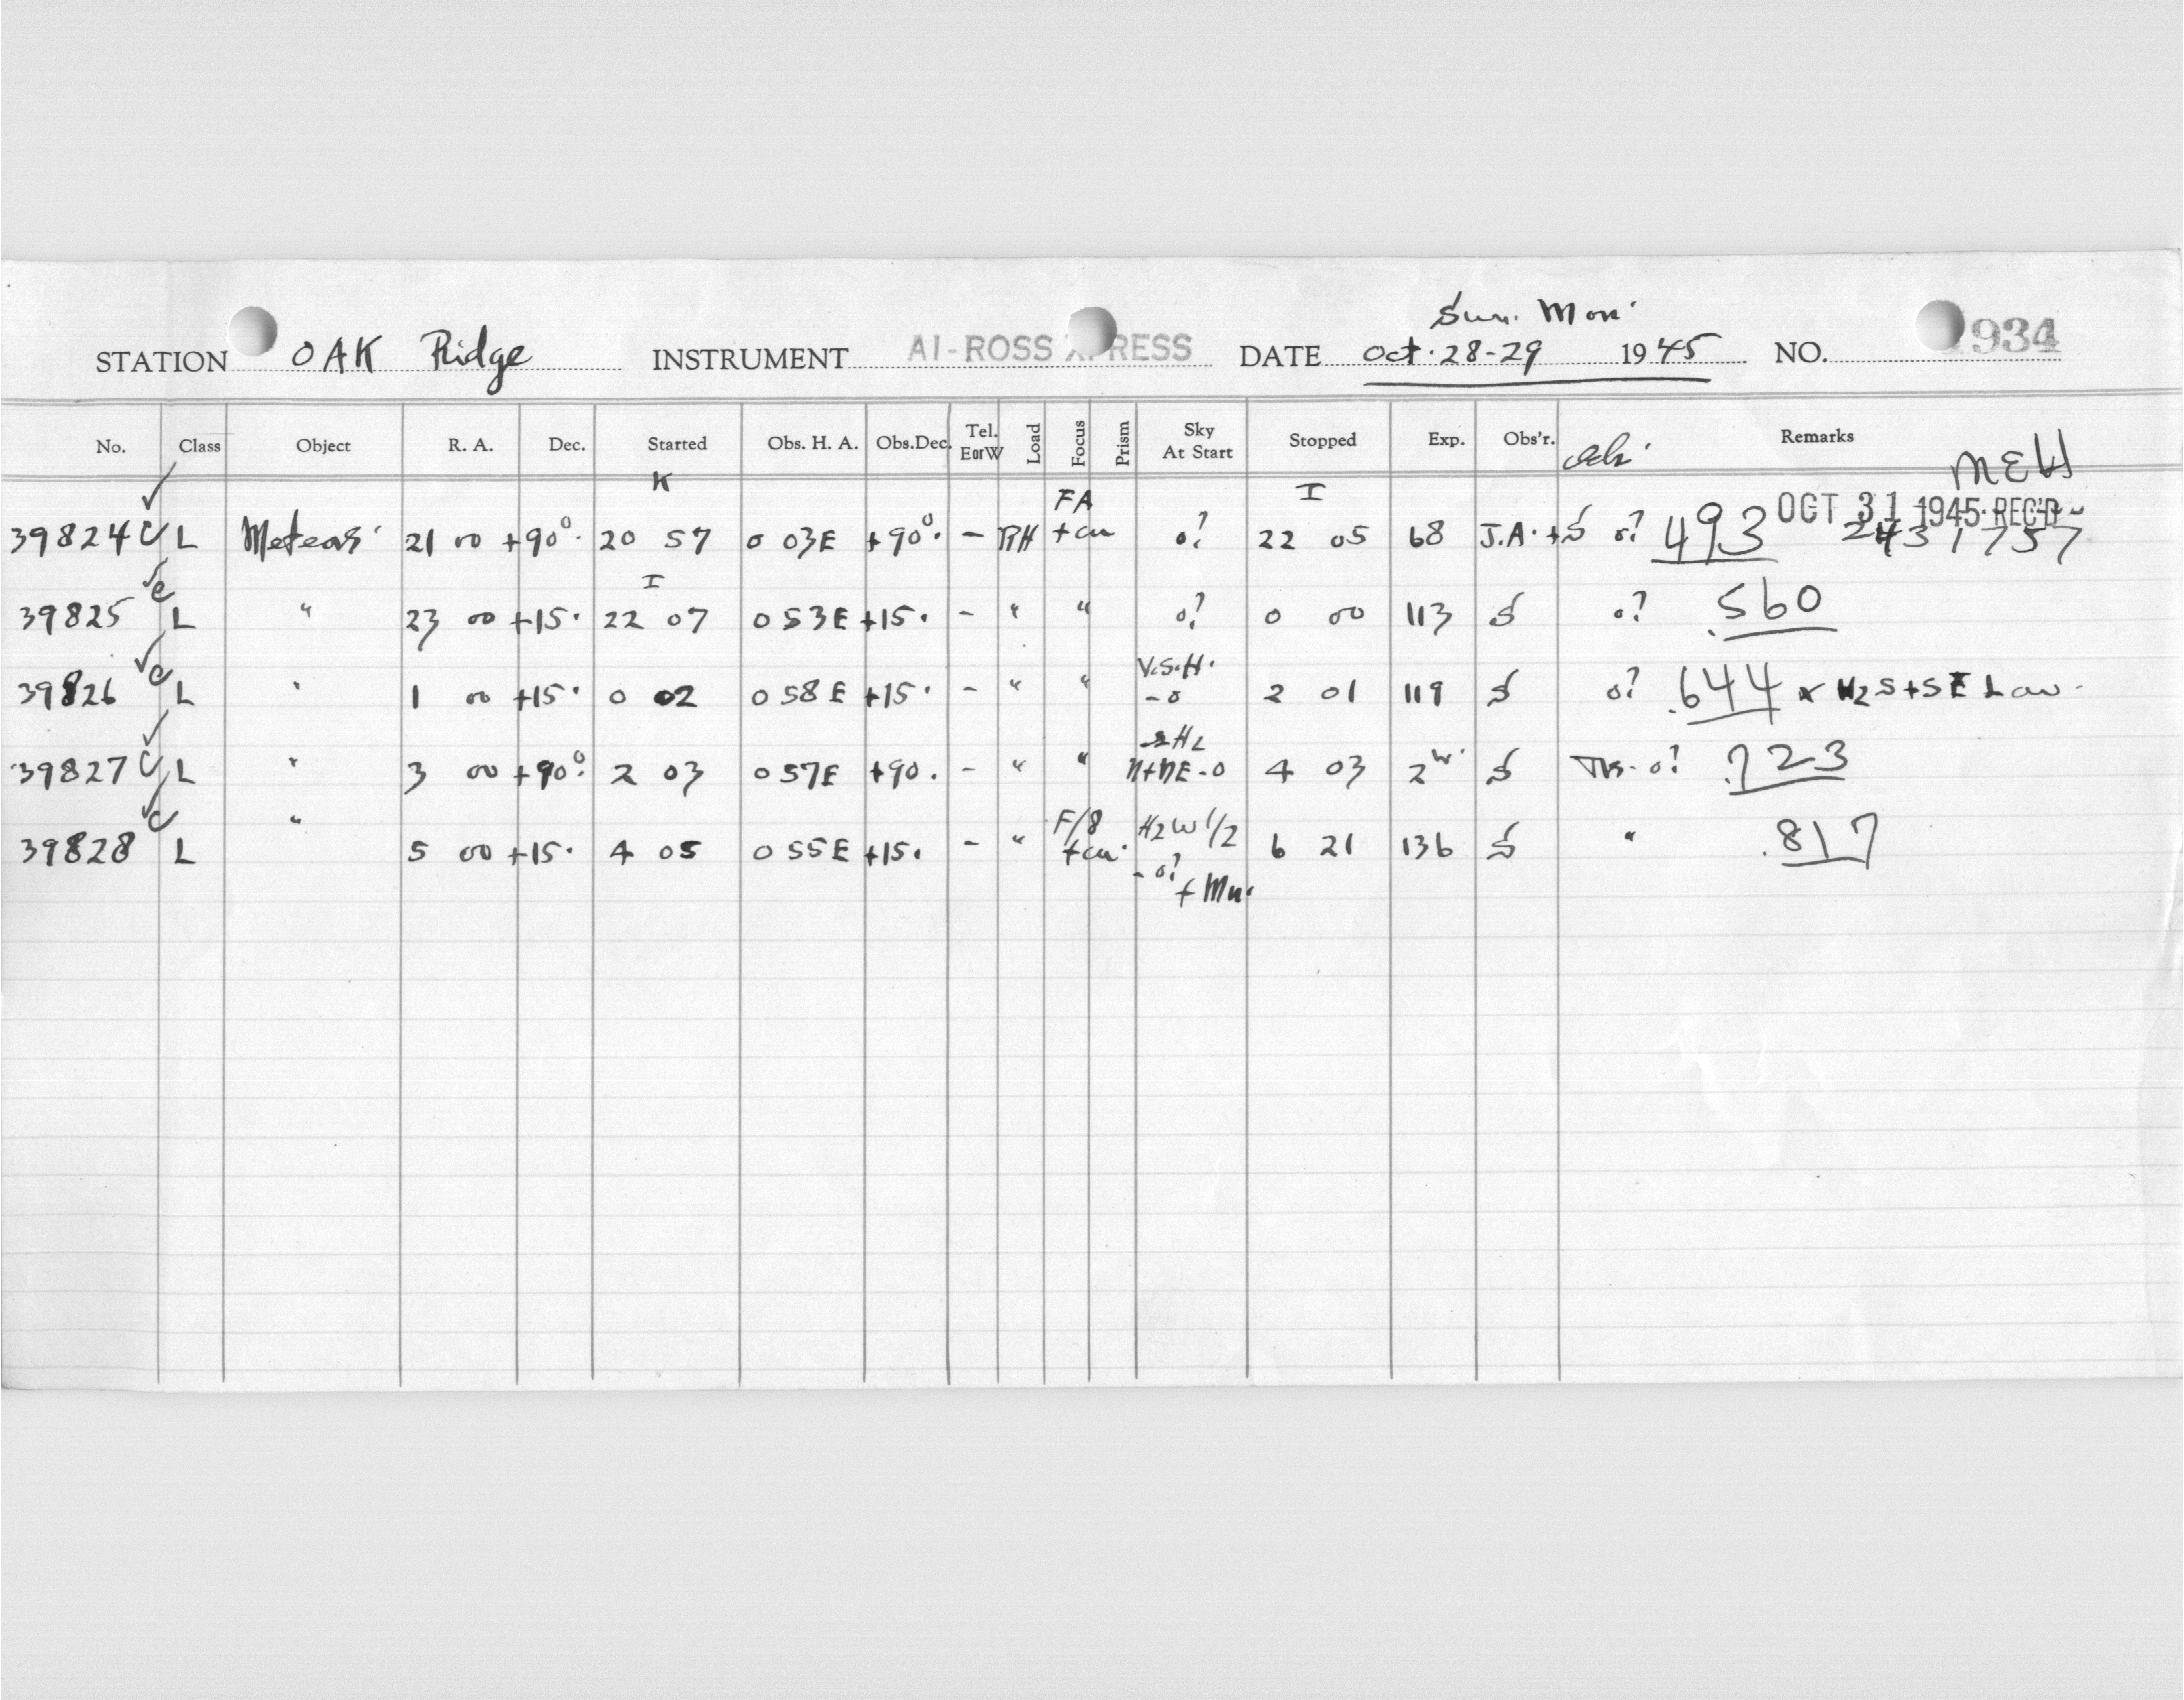 Sun. Mon.
STATION OAK Ridge INSTRUMENT A1-ROSS XPRESS DATE Oct. 28-29 1945 NO. 934
No. Class Object R. A. Dec. Started Obs. H. A. Obs.Dec. Tel. E or W Load Focus Prism Sky At Start Stopped Exp. Obs'r. Remarks
K FA I MEH
OCT 31 1945 REC'D
39824 C L Meteors 21 00 +90° 20 57 0 03E +90° - RH + cu o? 22 05 68 J.A. + S o? 493 2431757
I
39825 C L " 23 00 +15. 22 07 0 53E +15. - " " o? 0 00 113 S o? .560
V.S.H.
39826 C L " 1 00 +15. 0 02 0 58E +15. - " " -o 2 01 119 S o? .644 x Hz S + SE Low.
39827 C L " 3 00 +90° 2 03 0 57E +90. - " " N+NE-o 4 03 2 S o? .723
F/8 Hz W 1/2
39828 C L " 5 00 +15. 4 05 0 55E +15. - " + cu. 6 21 136 S " .817
- o?
+ Mn.